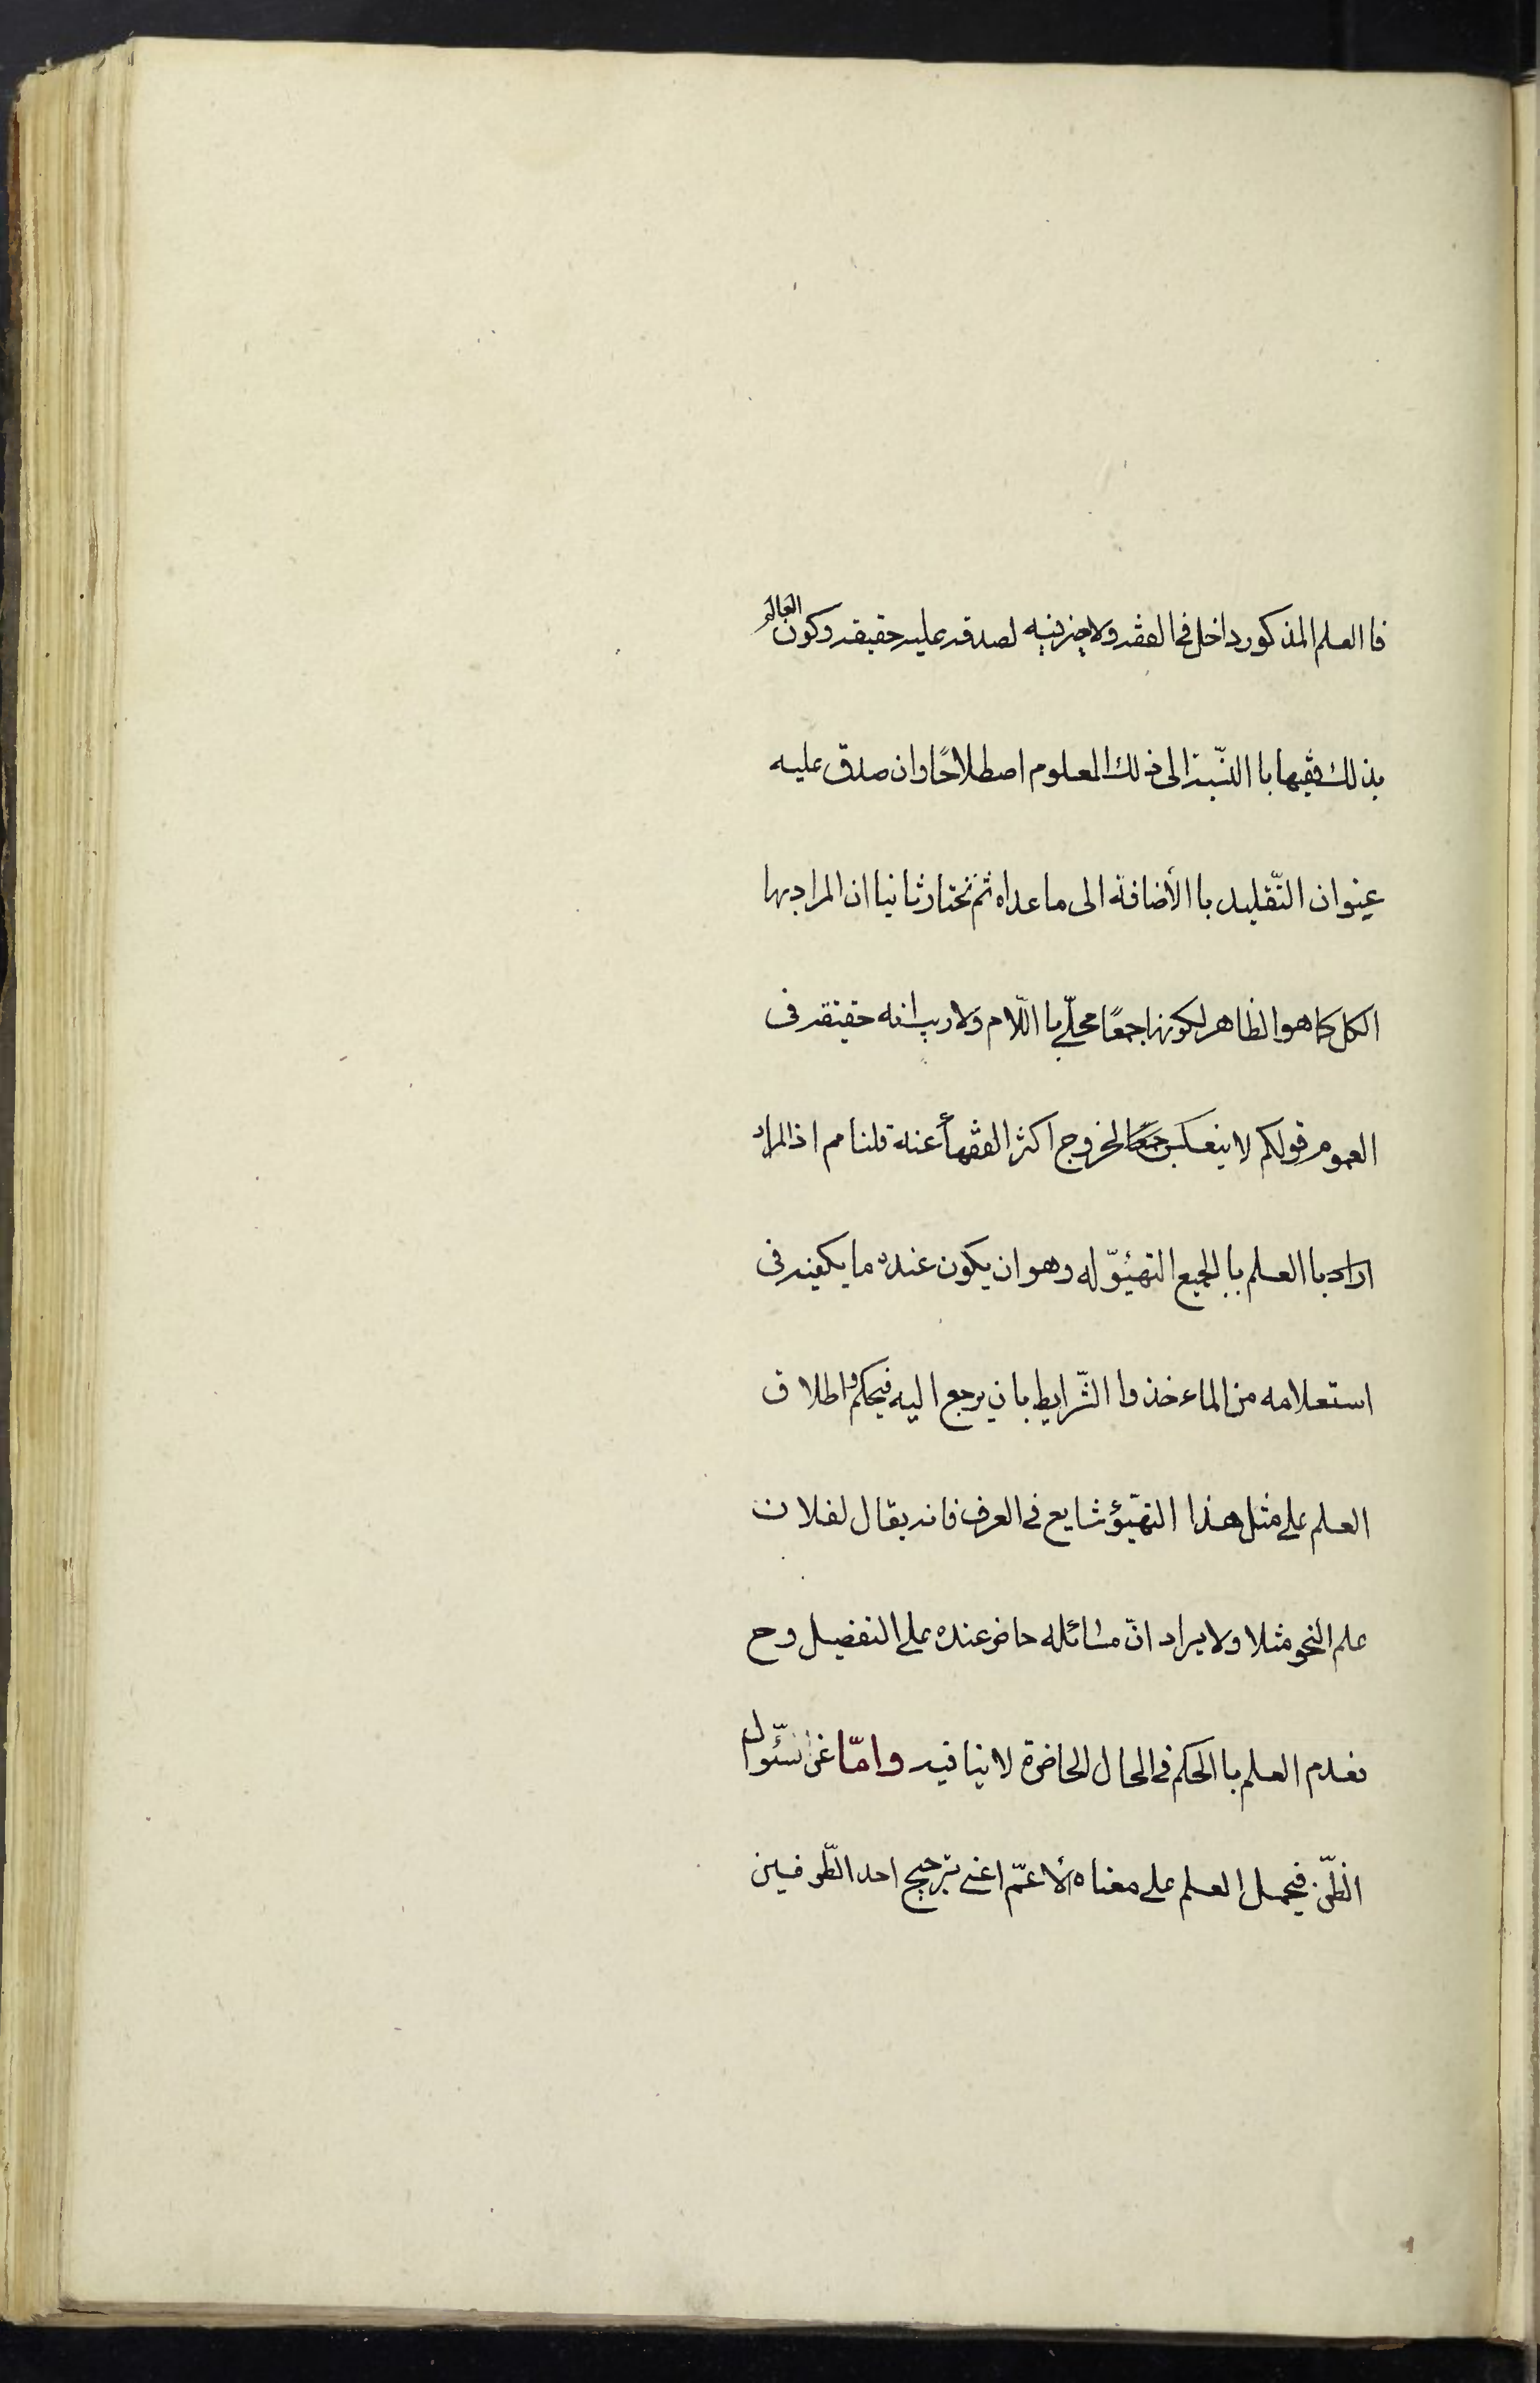 فا العلم المذكور داخل فى الفقه ولا ضرفيه لصدقه عليه حقيقه وكون العالم
بذلك فقيها با النّسبة الى ذلك المعلوم اصطلاحًا وان صدق عليه
عنوان التّقليد با الأضافة الى ما عداه ثم نختار ثانيا ان المراد بها
الكل كما هو الظاهر لكونها جمعًا محلّى با اللّام ولا ريب انه حقيقه فى
العموم قولكم لا ينعكس جمعًا لخروج اكثر الفقهأ عنه قلنا مم اذ المراد
اراد با العلم با الجميع التهيّؤ له وهو ان يكون عنده ما يكفيه فى
استعلامه من الماءخذ وا الشّرايط بان يرجع اليه فيحكم واطلاق
العلم على مثل هذا التهيّؤ شايع فى العرف فانه يقال لفلان
علم النحو مثلا ولا يراد انّ مسائله حاضر عنده على التفصيل وح
فعدم العلم با الحكم فى الحال الحاضرة لا ينافيه وامّا عن سئوال
الظّن فيحمل العلم على معناه الأعمّ اعنى ترجيح احد الطّرفين